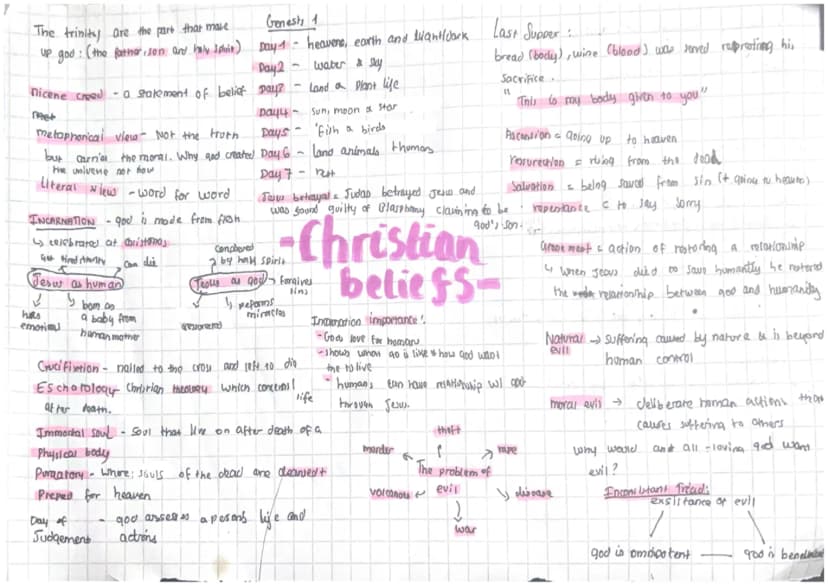 The trinity are the part that make
up god: (the father, son and holy spirit)
Nicene creed - a statement of belief
metaphorical view - Not the truth
but carries the moral. Why god created
the universe not how
Literal view - word for word
INCARNATION - god is made from flesh
↳ celebrated at christmas
Get tired thirsty
can die
Jesus as human
has emotions
born as a baby from human mother
Conceived by holy spirit
Jesus as god
forgives sins
performs miracles
resurrected
Crucifixtion - nailed to the cross and left to die
Eschatology - Christian theology which concerns life
after death.
Immortal soul - Soul that live on after death of a
Physical body
Purgatory - Where; souls of the dead are cleansed +
Preped for heaven
Day of Judgement - god assesses a persons life and
actions
Genesis 1
Day 1 - heavens, earth and light/dark
Day 2 - water & sky
Day 3 - land & plant life
Day 4 - sun, moon & star
Day 5 - Fish & birds
Day 6 - land animals + humans
Day 7 - rest
Jesus betrayal = Judas betrayed Jesus and
was found guilty of Blasphemy claiming to be
god's son.
-Christian
beliefs-
Incarnation importance:
- Gods love for humans
- shows when go is like & how god want
the to live
- humans can have relationship w/ god
through Jesus.
theft
murder
rape
The problem of
evil
volcanous
disease
war
Last Supper:
bread (body), wine (blood) was served representing his
sacrifice.
"This is my body given to you"
Ascension = going up to heaven
resurection = rising from the dead
Salvation = being saved from sin (+ going to heaven)
repentance = to say sorry
atonement = action of restoring a relationship
↳ when Jesus died to save humanity he restored
the relationship between god and humanity
Natural evil → suffering caused by nature & is beyond
human control
moral evil → deliberate human actions that
causes suffering to others
Why would and all-loving god want
evil?
Inconsistant Triad:
exsistance of evil
god is omnipotent — god is benevolent